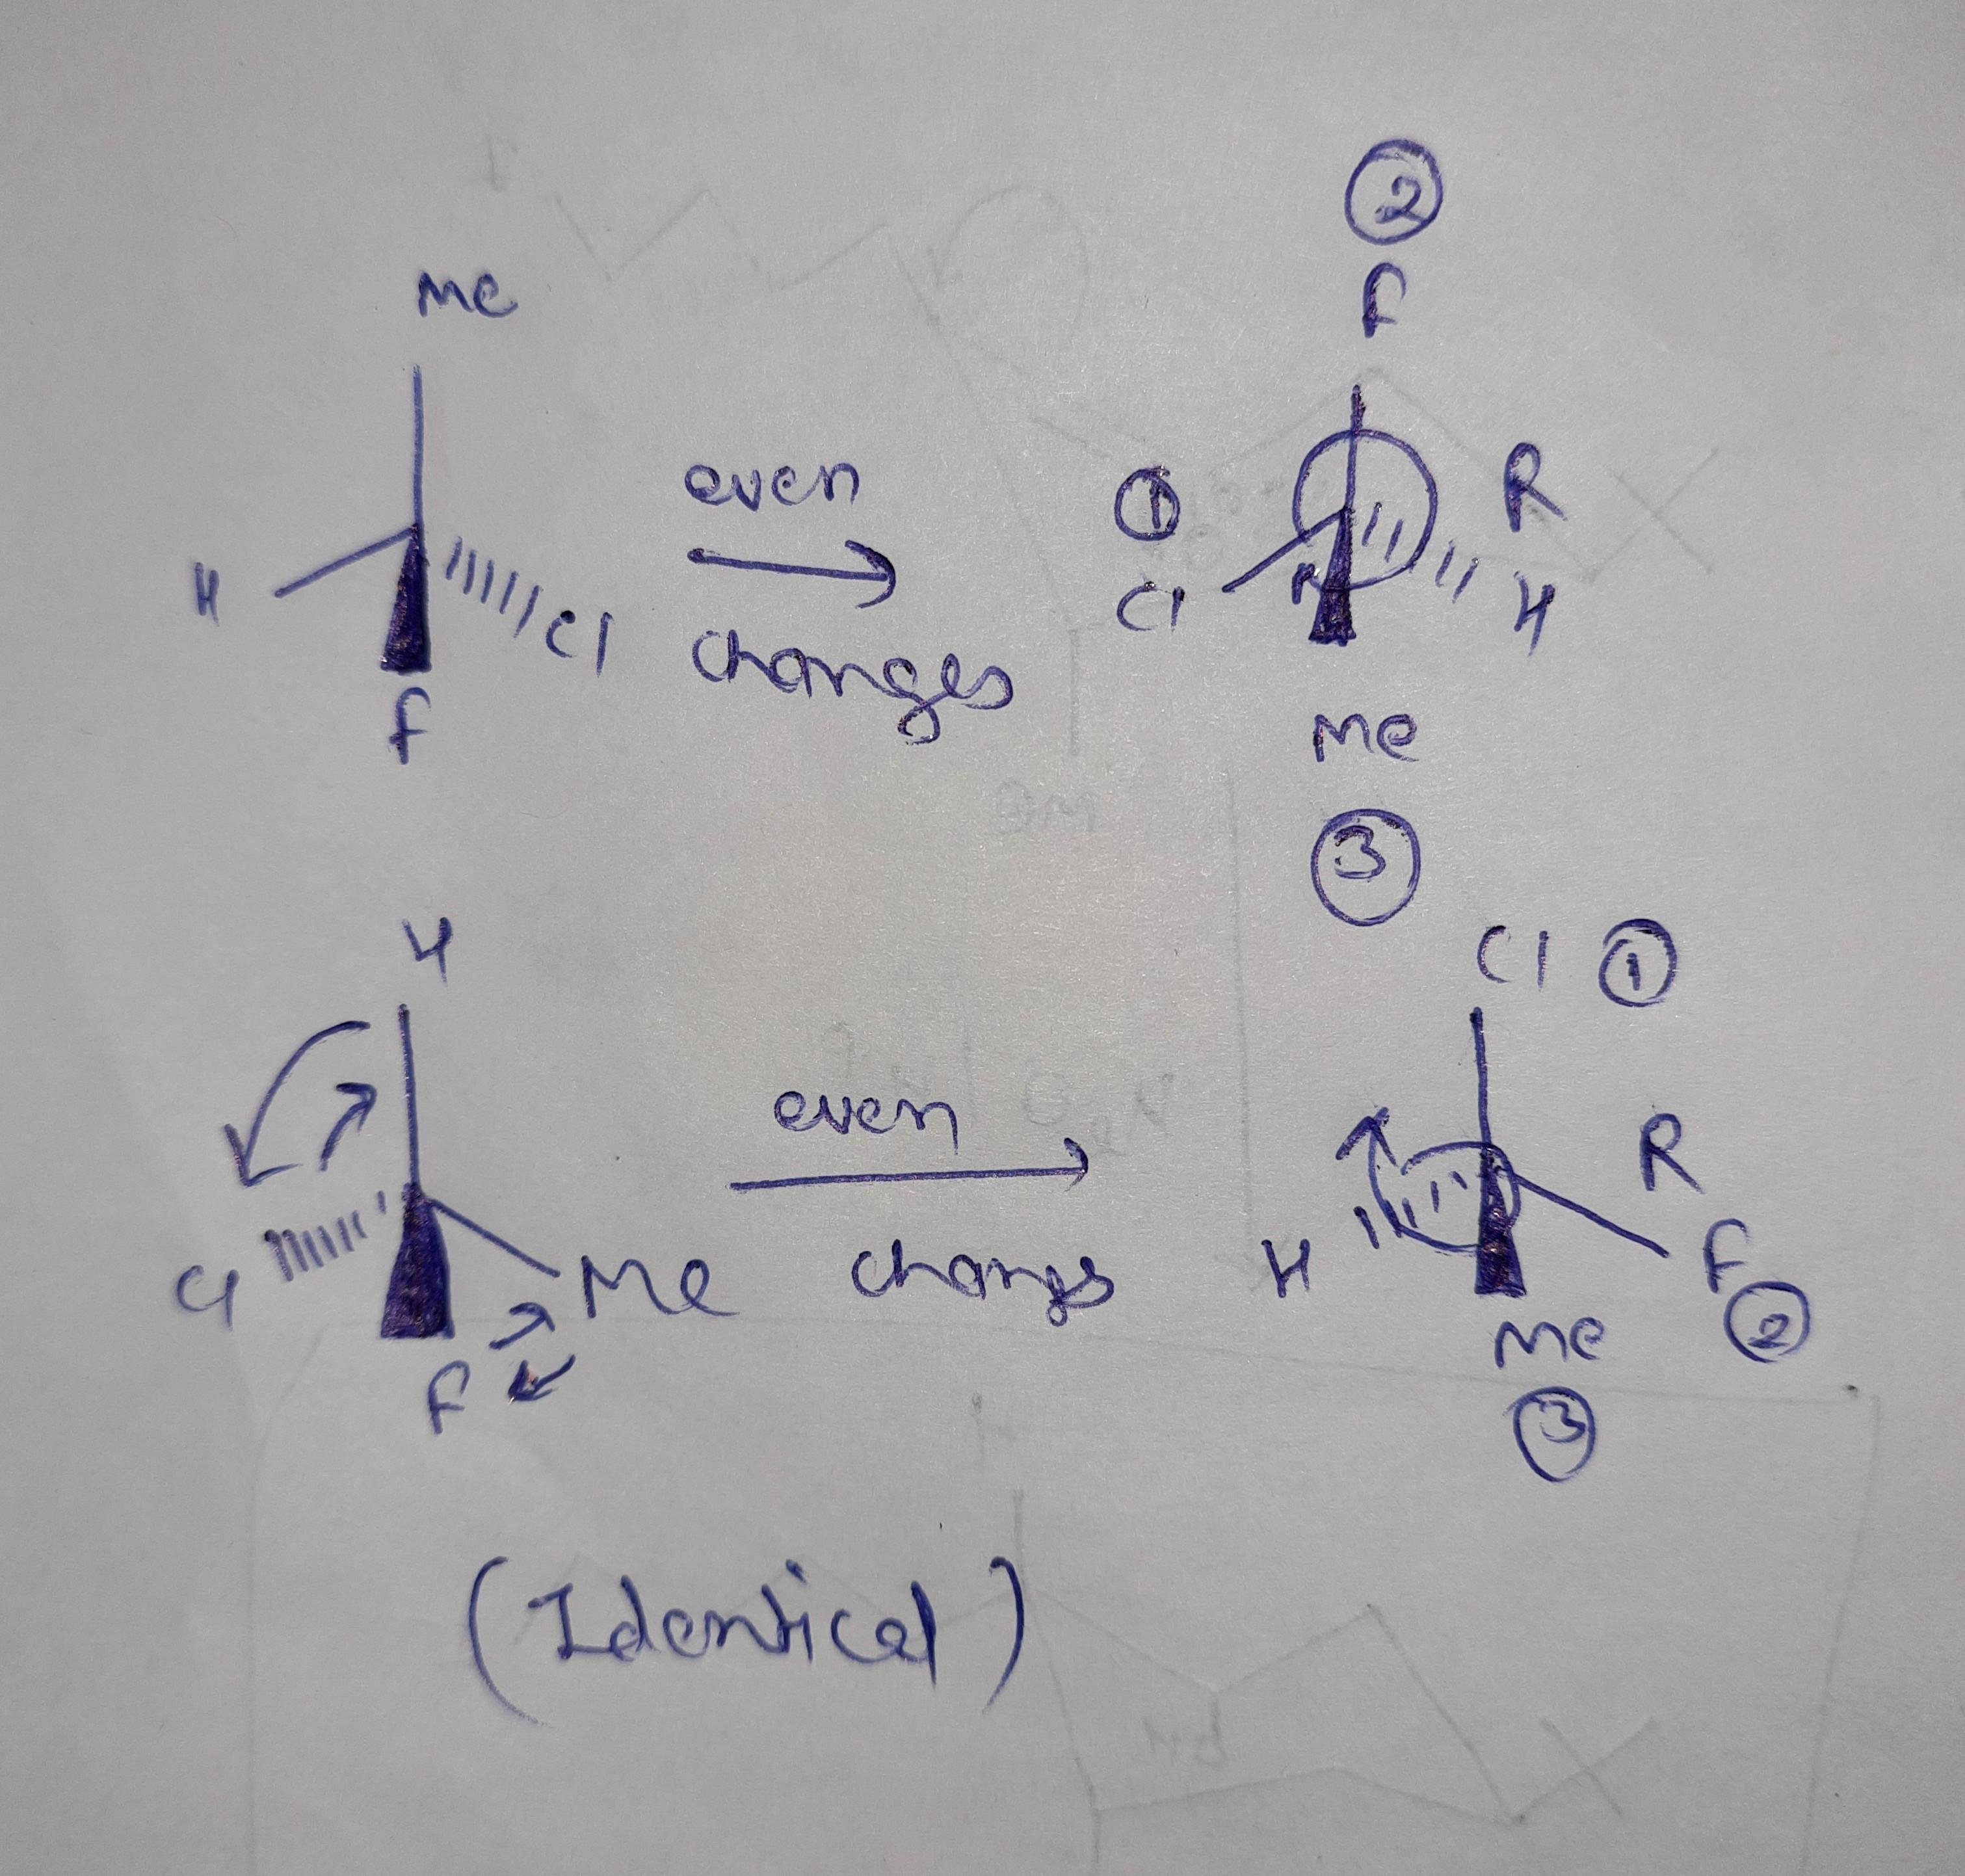 ②
Me
F
even
①
R
H
Cl
Cl
H
changes
F
Me
③
H
Cl ①
even
R
Cl
Me
changs
H
F
②
F
Me
③
(Identical)